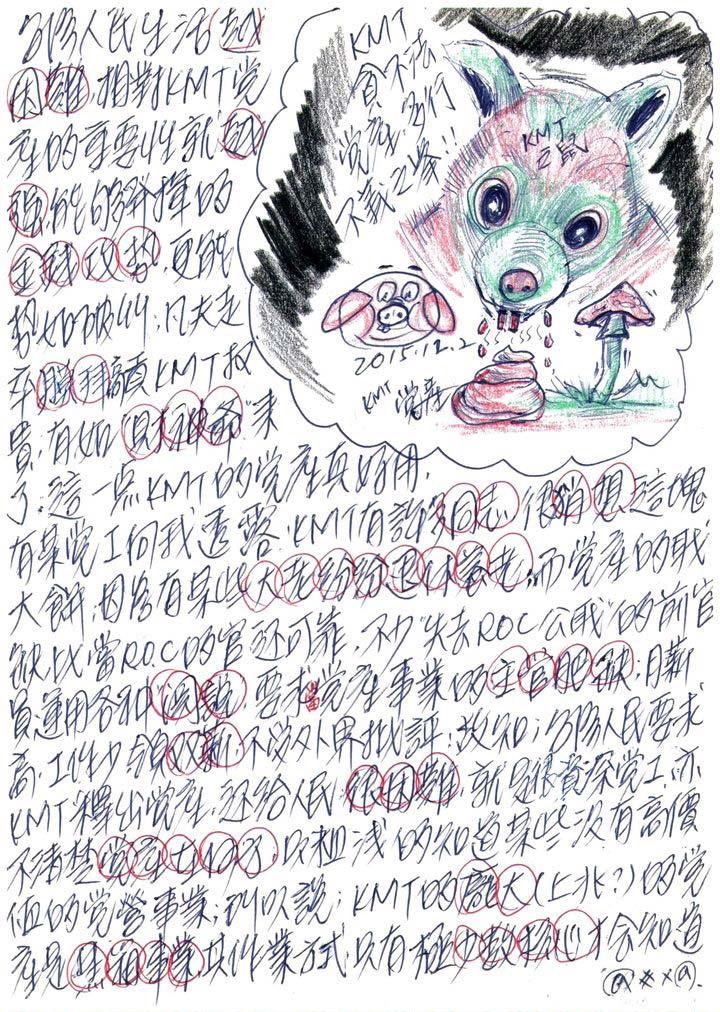 台灣人民生活越
困難,相對KMT党
產的重要性就越
強,能夠發揮的
金錢攻勢,更能
勢如破竹;凡夫走
卒膜拜高顏KMT权
貴,有如"財神爺"来
了,這一点KMT的党產真好用,
有某党工向我透露,KMT有許多同志,很消想這塊
大餅,因為有某些大老紛紛退休養老,而党產的职
缺比當ROC的官还可靠,不少"失去ROC公职"的前官
員運用各种遊說,要求當党產事業的主管肥缺;月薪
高,工作少,領双薪,不必外界批評,故知;台灣人民要求
KMT釋出党產,还給人民,很困難,就是很資深党工,亦
不清楚党產有多少,只粗浅的知道某些没有高價
值的党營事業;所以說;KMT的龐大(上兆?)的党
產是黑箱事業,其作業方式,只有極少數核心才会知道
KMT
貪不法
党產,多行
不義之举!!
KMT
之鼠
2015.12.2
KMT 党產